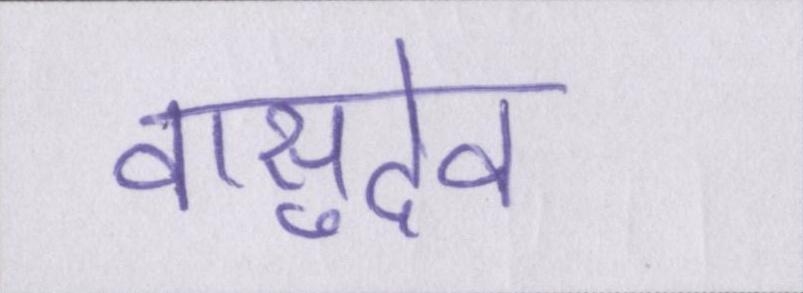 वासुदेव